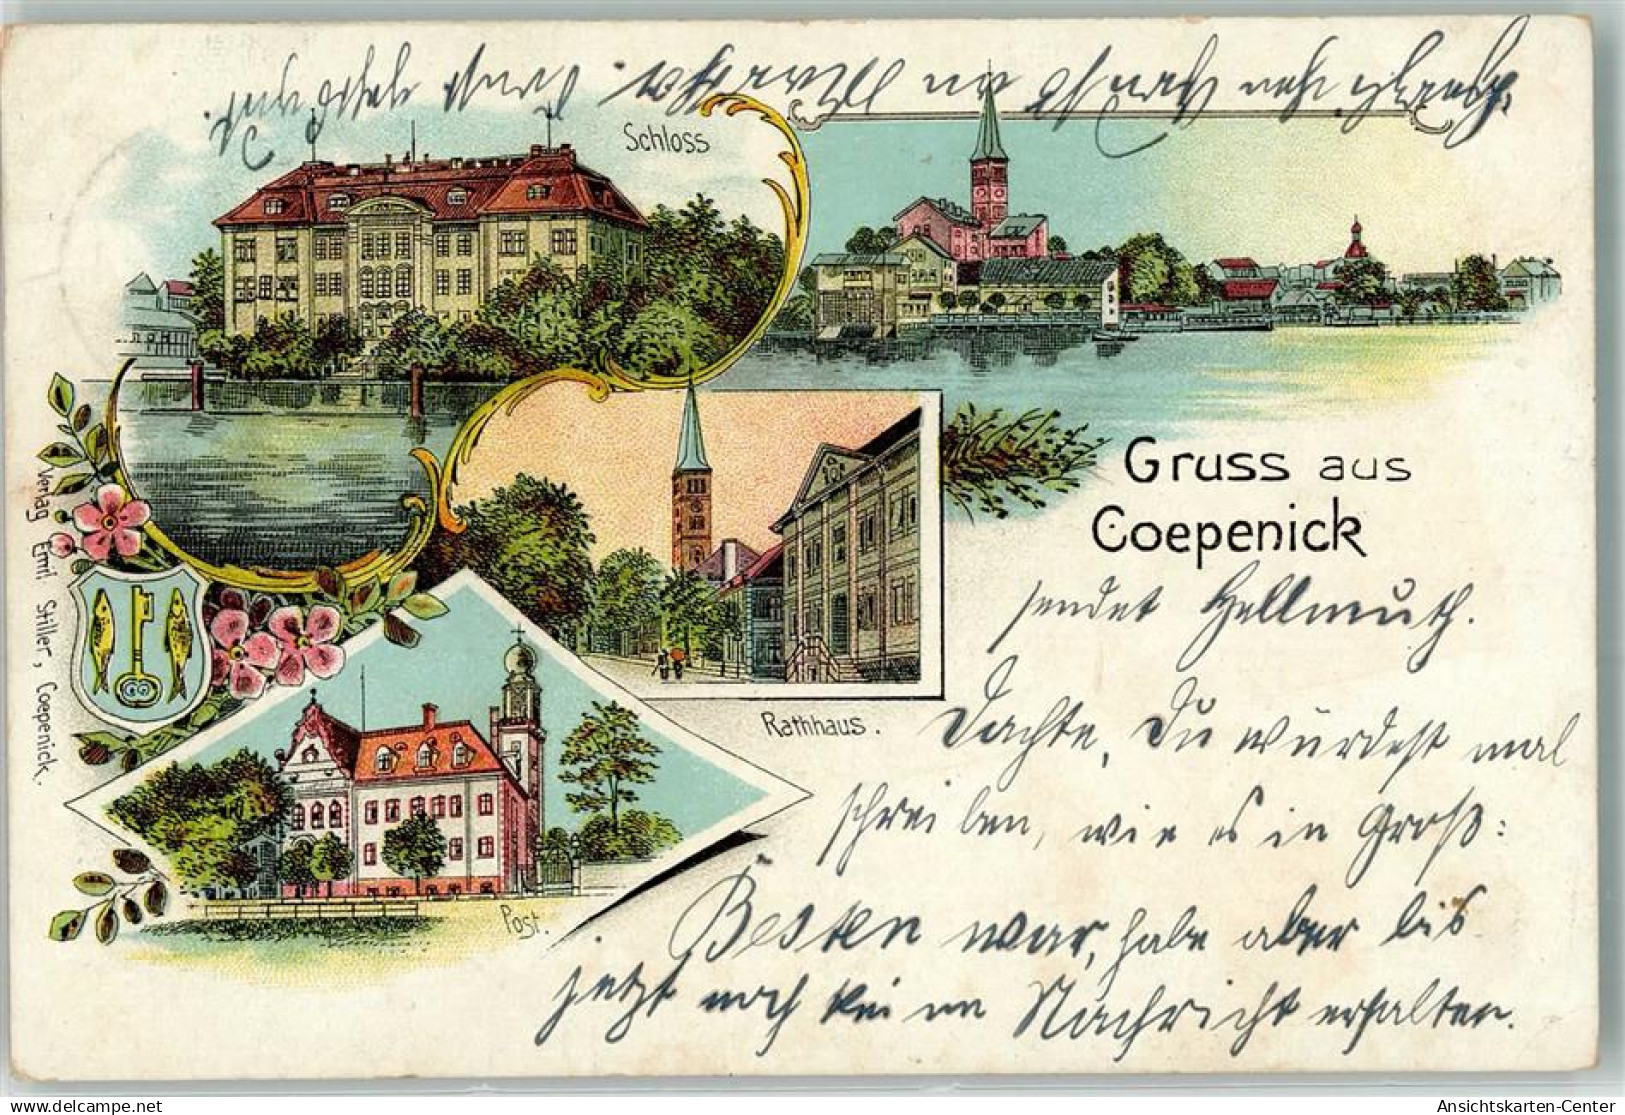 Schloss
Rathhaus.
Post.
Verlag Emil Stiller, Coepenick.
Gruss aus
Coepenick
sendet Hellmuth.
Dachte, Du würdest mal
schreiben, wie es in Groß:
Besten war, habe aber bis
jetzt noch keine Nachricht erhalten.
delcampe.net
Ansichtskarten-Center